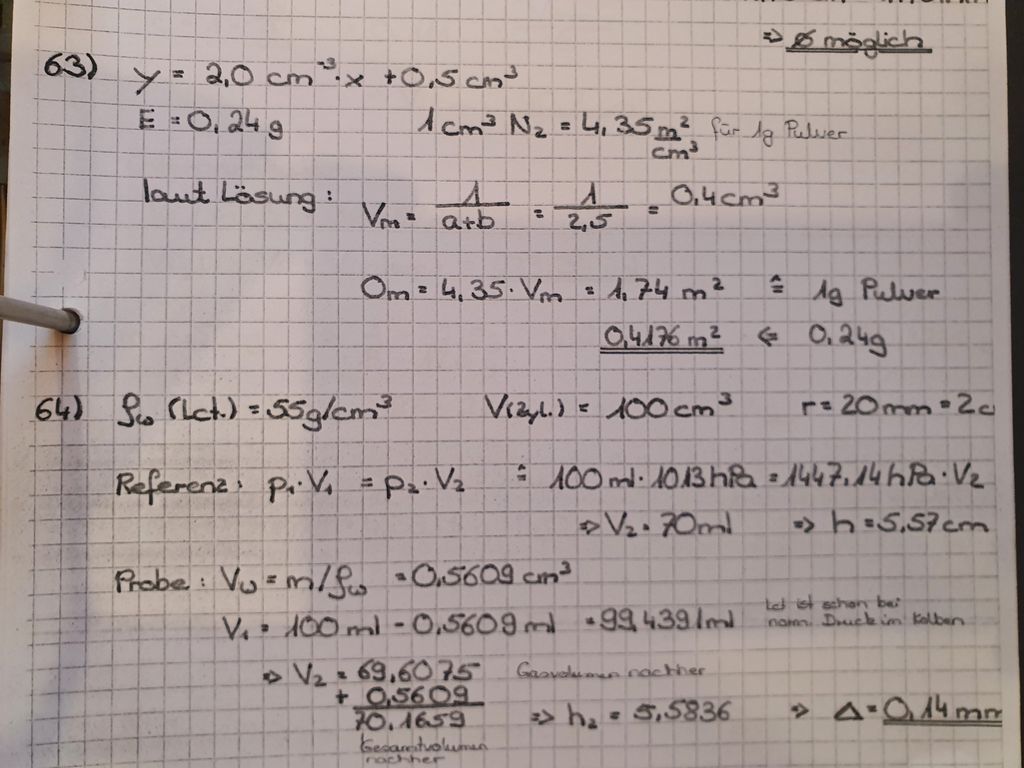 ⇒ ∅ möglich
63) y = 2,0 cm⁻³·x + 0,5 cm³
E = 0,24g 1cm³ N₂ = 4,35 m²/cm³ für 1g Pulver
laut Lösung: Vm = 1/(a+b) = 1/2,5 = 0,4cm³
Om = 4,35·Vm = 1,74 m² ≙ 1g Pulver
0,4176 m² ⇐ 0,24g
64) ρω (Lct.) = 55g/cm³ V(zyl.) = 100cm³ r = 20mm = 2c
Referenz: p₁·V₁ = p₂·V₂ ≙ 100ml·1013hPa = 1447,14hPa·V₂
⇒ V₂ = 70ml ⇒ h = 5,57cm
Probe: Vω = m/ρω = 0,5609 cm³
V₁ = 100ml - 0,5609 ml = 99,4391ml Lct ist schon bei
norm. Druck im Kolben
⇒ V₂ = 69,6075 Gasvolumen nachher
+ 0,5609
70,1659 ⇒ h₂ = 5,5836 ⇒ Δ = 0,14mm
Gesamtvolumen
nachher